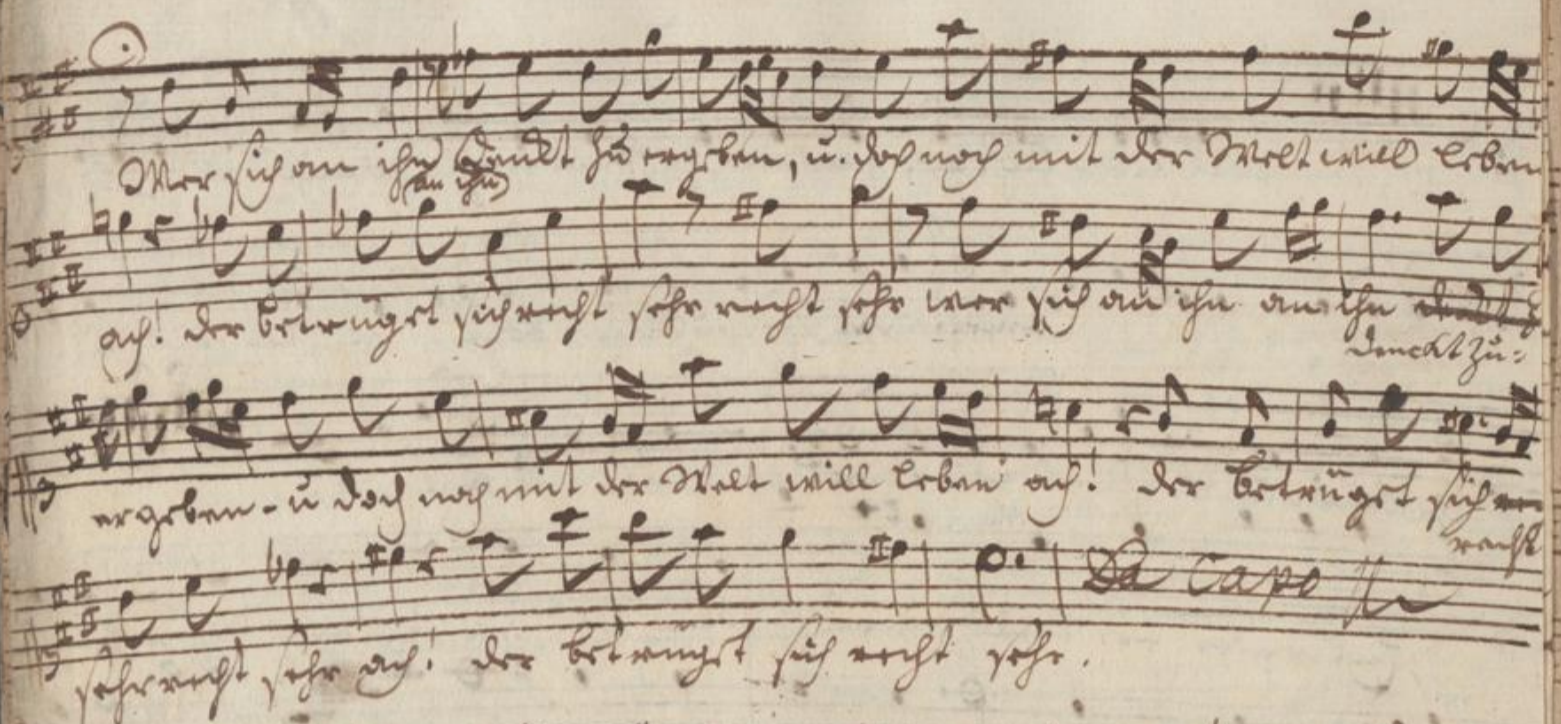 Wer sich an ihn denckt zu ergeben, u. doch noch mit der Welt will leben
an ihn
ach! der betrüget sich recht sehr recht sehr wer sich an ihn an ihn
denckt zu-
ergeben - u doch noch mit der Welt will leben ach! der betrüget sich
recht
sehr recht sehr ach! der betrüget sich recht sehr.
Da Capo